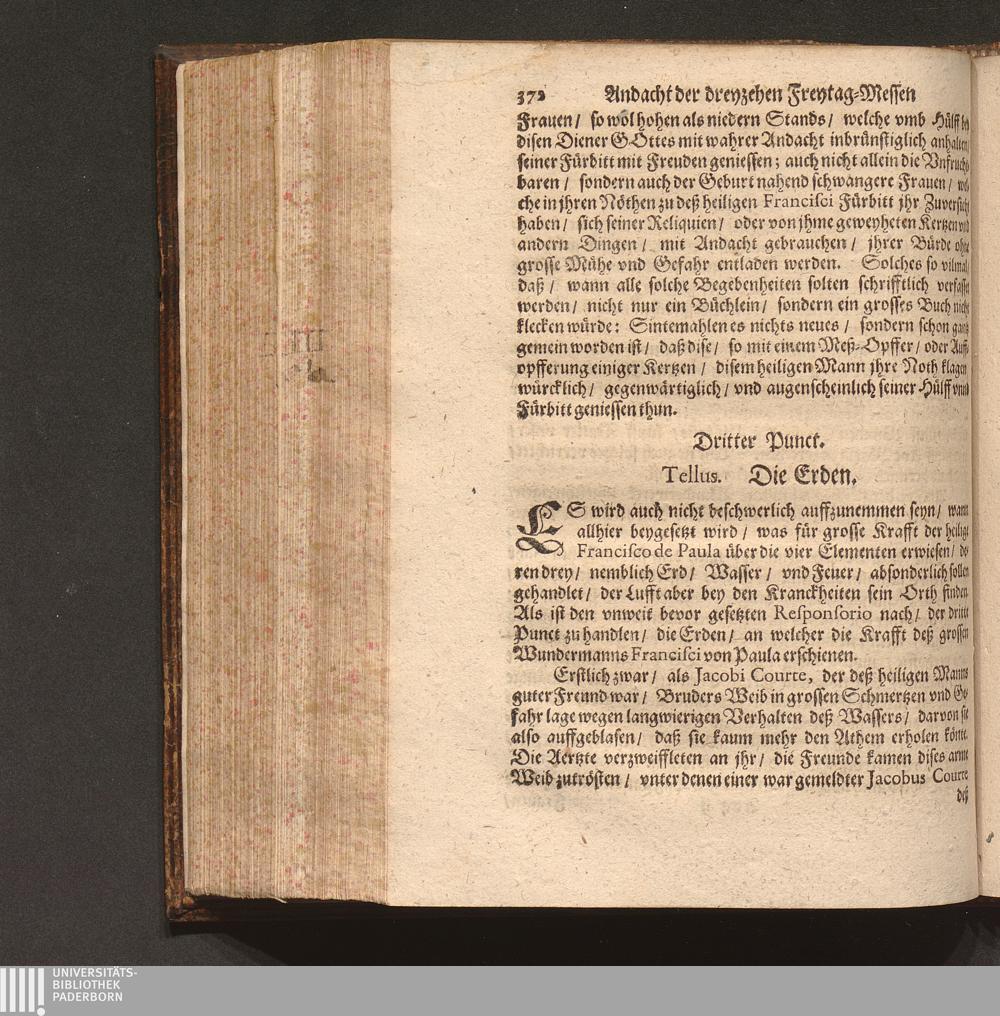 372 Andacht der dreyzehen Freytag-Messen
Frauen / so wol hohen als niedern Stands / welche vmb Hülff bey
disen Diener GOttes mit wahrer Andacht inbrünstiglich anhalten /
seiner Fürbitt mit Freuden geniessen; auch nicht allein die Vnfrucht-
baren / sondern auch der Geburt nahend schwangere Frauen / wel-
che in jhren Nöthen zu deß heiligen Francisci Fürbitt jhr Zuversicht
haben / sich seiner Reliquien / oder von jhme geweyheten Kertzen vnd
andern Dingen / mit Andacht gebrauchen / jhrer Bürde ohne
grosse Mühe vnd Gefahr entladen werden. Solches so vilmal /
daß / wann alle solche Begebenheiten solten schrifftlich verfasset
werden / nicht nur ein Büchlein / sondern ein grosses Buch nicht
klecken würde: Sintemahlen es nichts neues / sondern schon gantz
gemein worden ist / daß dise / so mit einem Meß-Opffer / oder Auff-
opfferung einiger Kertzen / disem heiligen Mann jhre Noth klagen
würcklich / gegenwärtiglich / vnd augenscheinlich seiner Hülff vnnd
Fürbitt geniessen thun.
Dritter Punct.
Tellus. Die Erden.
ES wird auch nicht beschwerlich auffzunemmen seyn / wann
allhier beygesetzt wird / was für grosse Krafft der heilige
Francisco de Paula über die vier Elementen erwiesen / de-
ren drey / nemblich Erd / Wasser / vnd Feuer / absonderlich sollen
gehandlet / der Lufft aber bey den Kranckheiten sein Orth finden.
Als ist den vnweit bevor gesetzten Responsorio nach / der dritte
Punct zu handlen / die Erden / an welcher die Krafft deß grossen
Wundermanns Francisci von Paula erschienen.
Erstlich zwar / als Jacobi Courte, der deß heiligen Manns
guter Freund war / Bruders Weib in grossen Schmertzen vnd Ge-
fahr lage wegen langwierigen Verhalten deß Wassers / darvon sie
also auffgeblasen / daß sie kaum mehr den Athem erholen könte.
Die Aertzte verzweiffleten an jhr / die Freunde kamen dises arme
Weib zutrösten / vnter denen einer war gemeldter Jacobus Courte
deß
UNIVERSITÄTS-
BIBLIOTHEK
PADERBORN